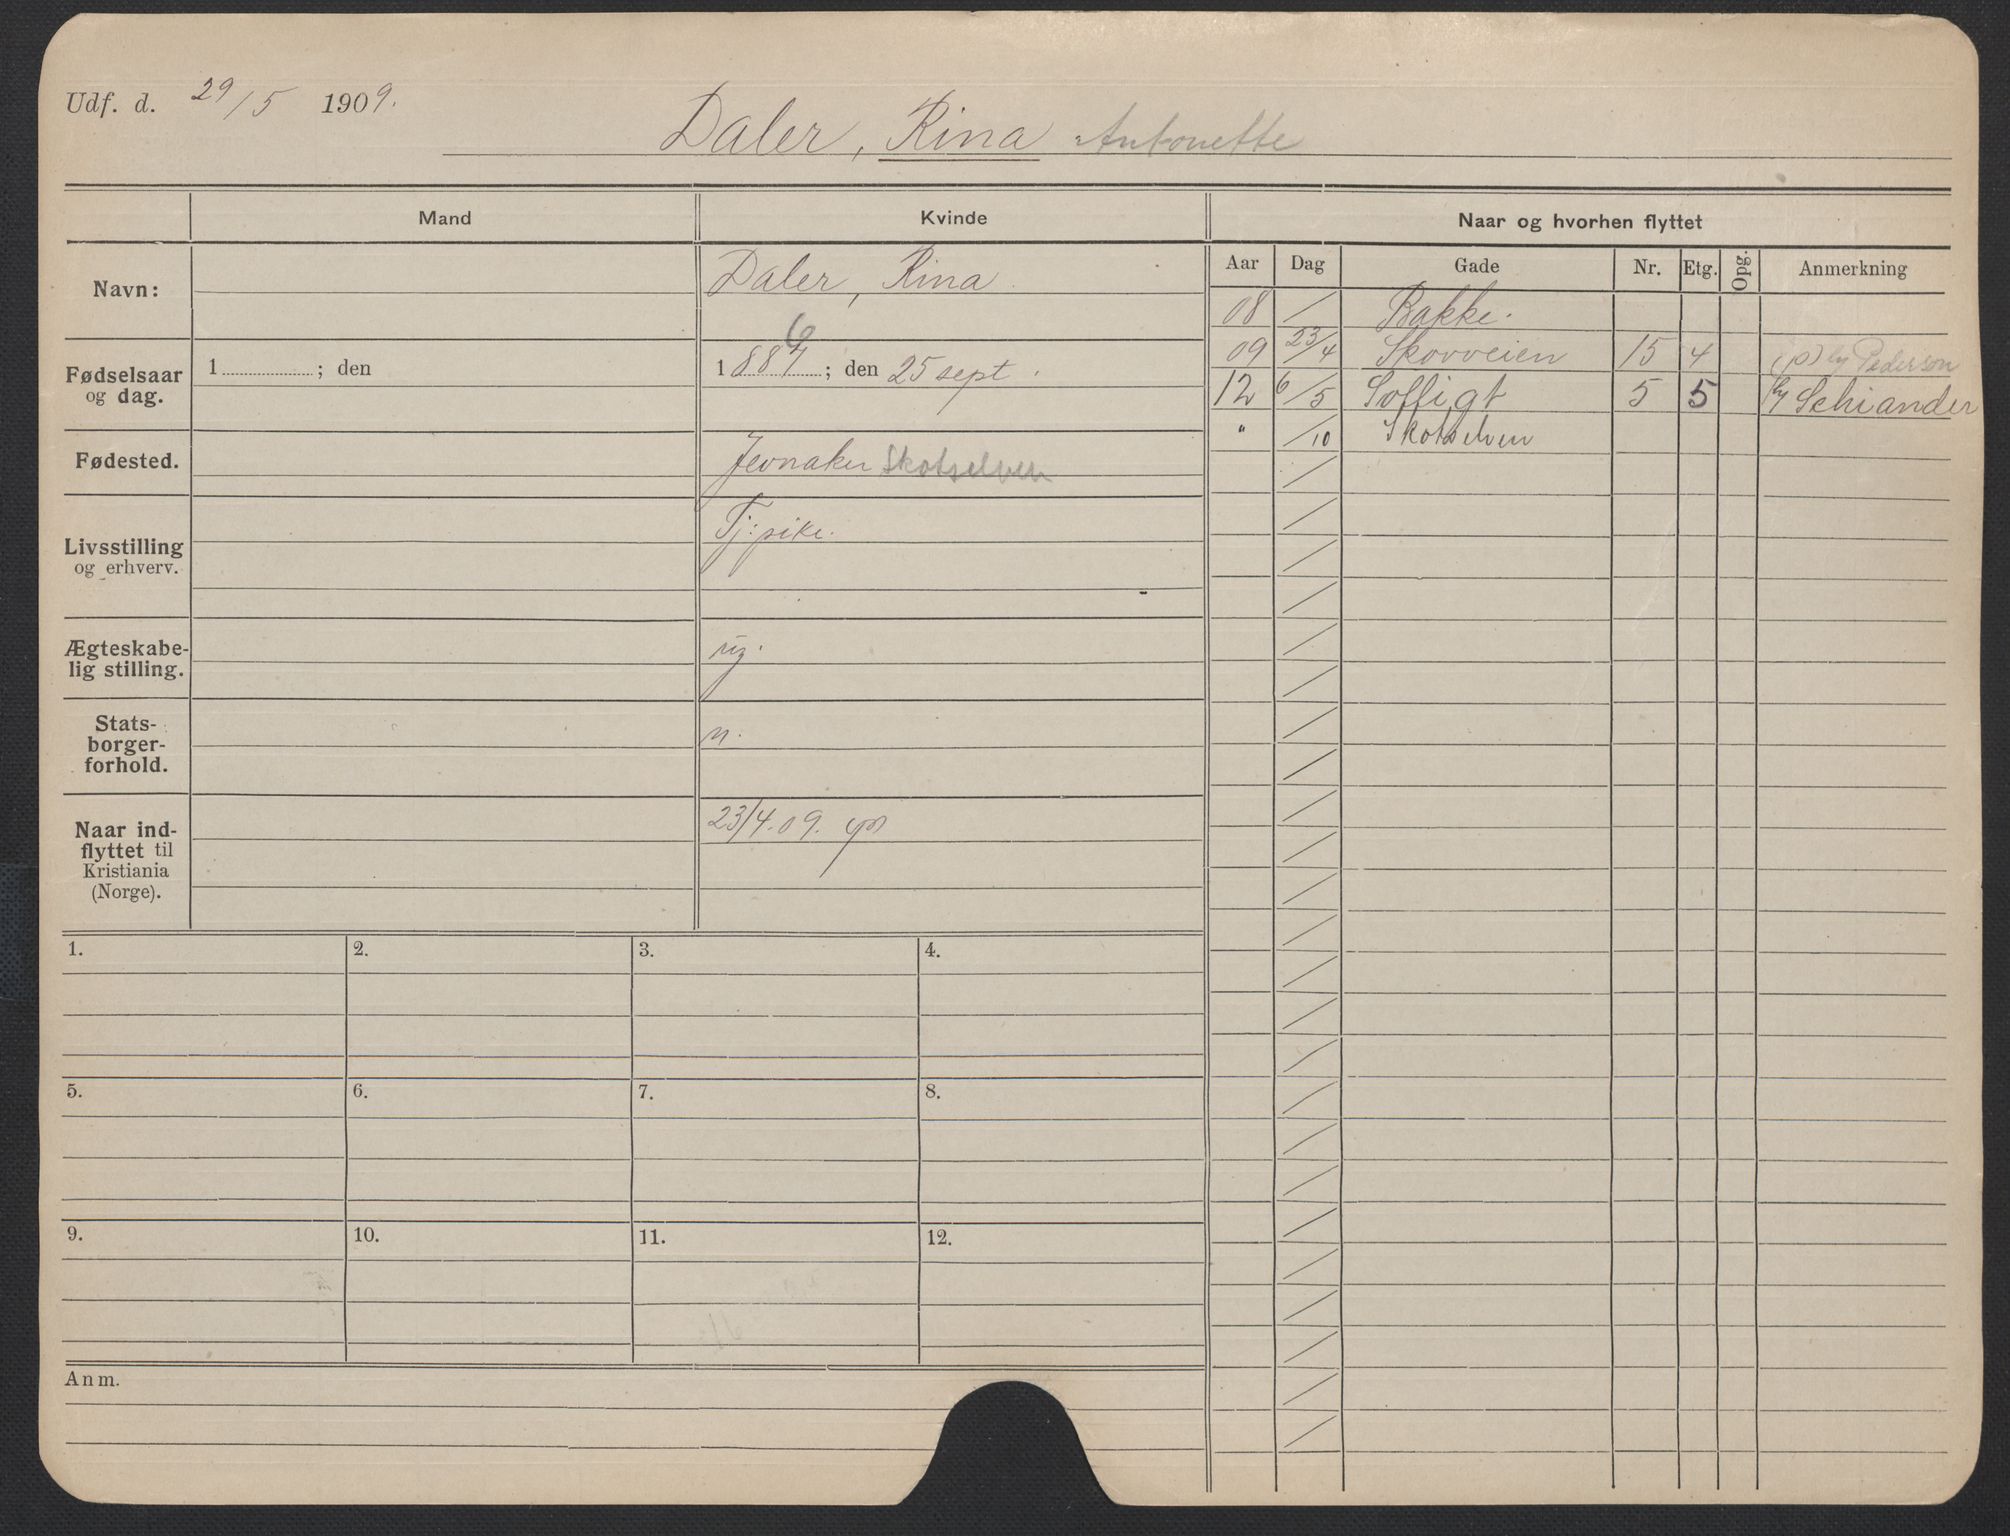 Udf. d. 29/5 1909.
Daler, Rina Antonette
Mand Kvinde Naar og hvorhen flyttet
Navn: Daler, Rina
Fødselsaar og dag. 1 ; den 1887 6 ; den 25 sept.
Fødested. Jevnaker Skotselven
Livsstilling og erhverv. Tj: pike.
Ægteskabe-
lig stilling. ug.
Stats-
borger-
forhold. n.
Naar ind-
flyttet til
Kristiania
(Norge). 23/4.09.
Aar Dag Gade Nr. Etg. Opg. Anmerkning
08 / Bakke.
09 23/4 Skovveien 15 4 (p) hy Pederson
12 6/5 Soffigt 5 5 hy Schiander
" /10 Skotselven
1. 2. 3. 4.
5. 6. 7. 8.
9. 10. 11. 12.
Anm.